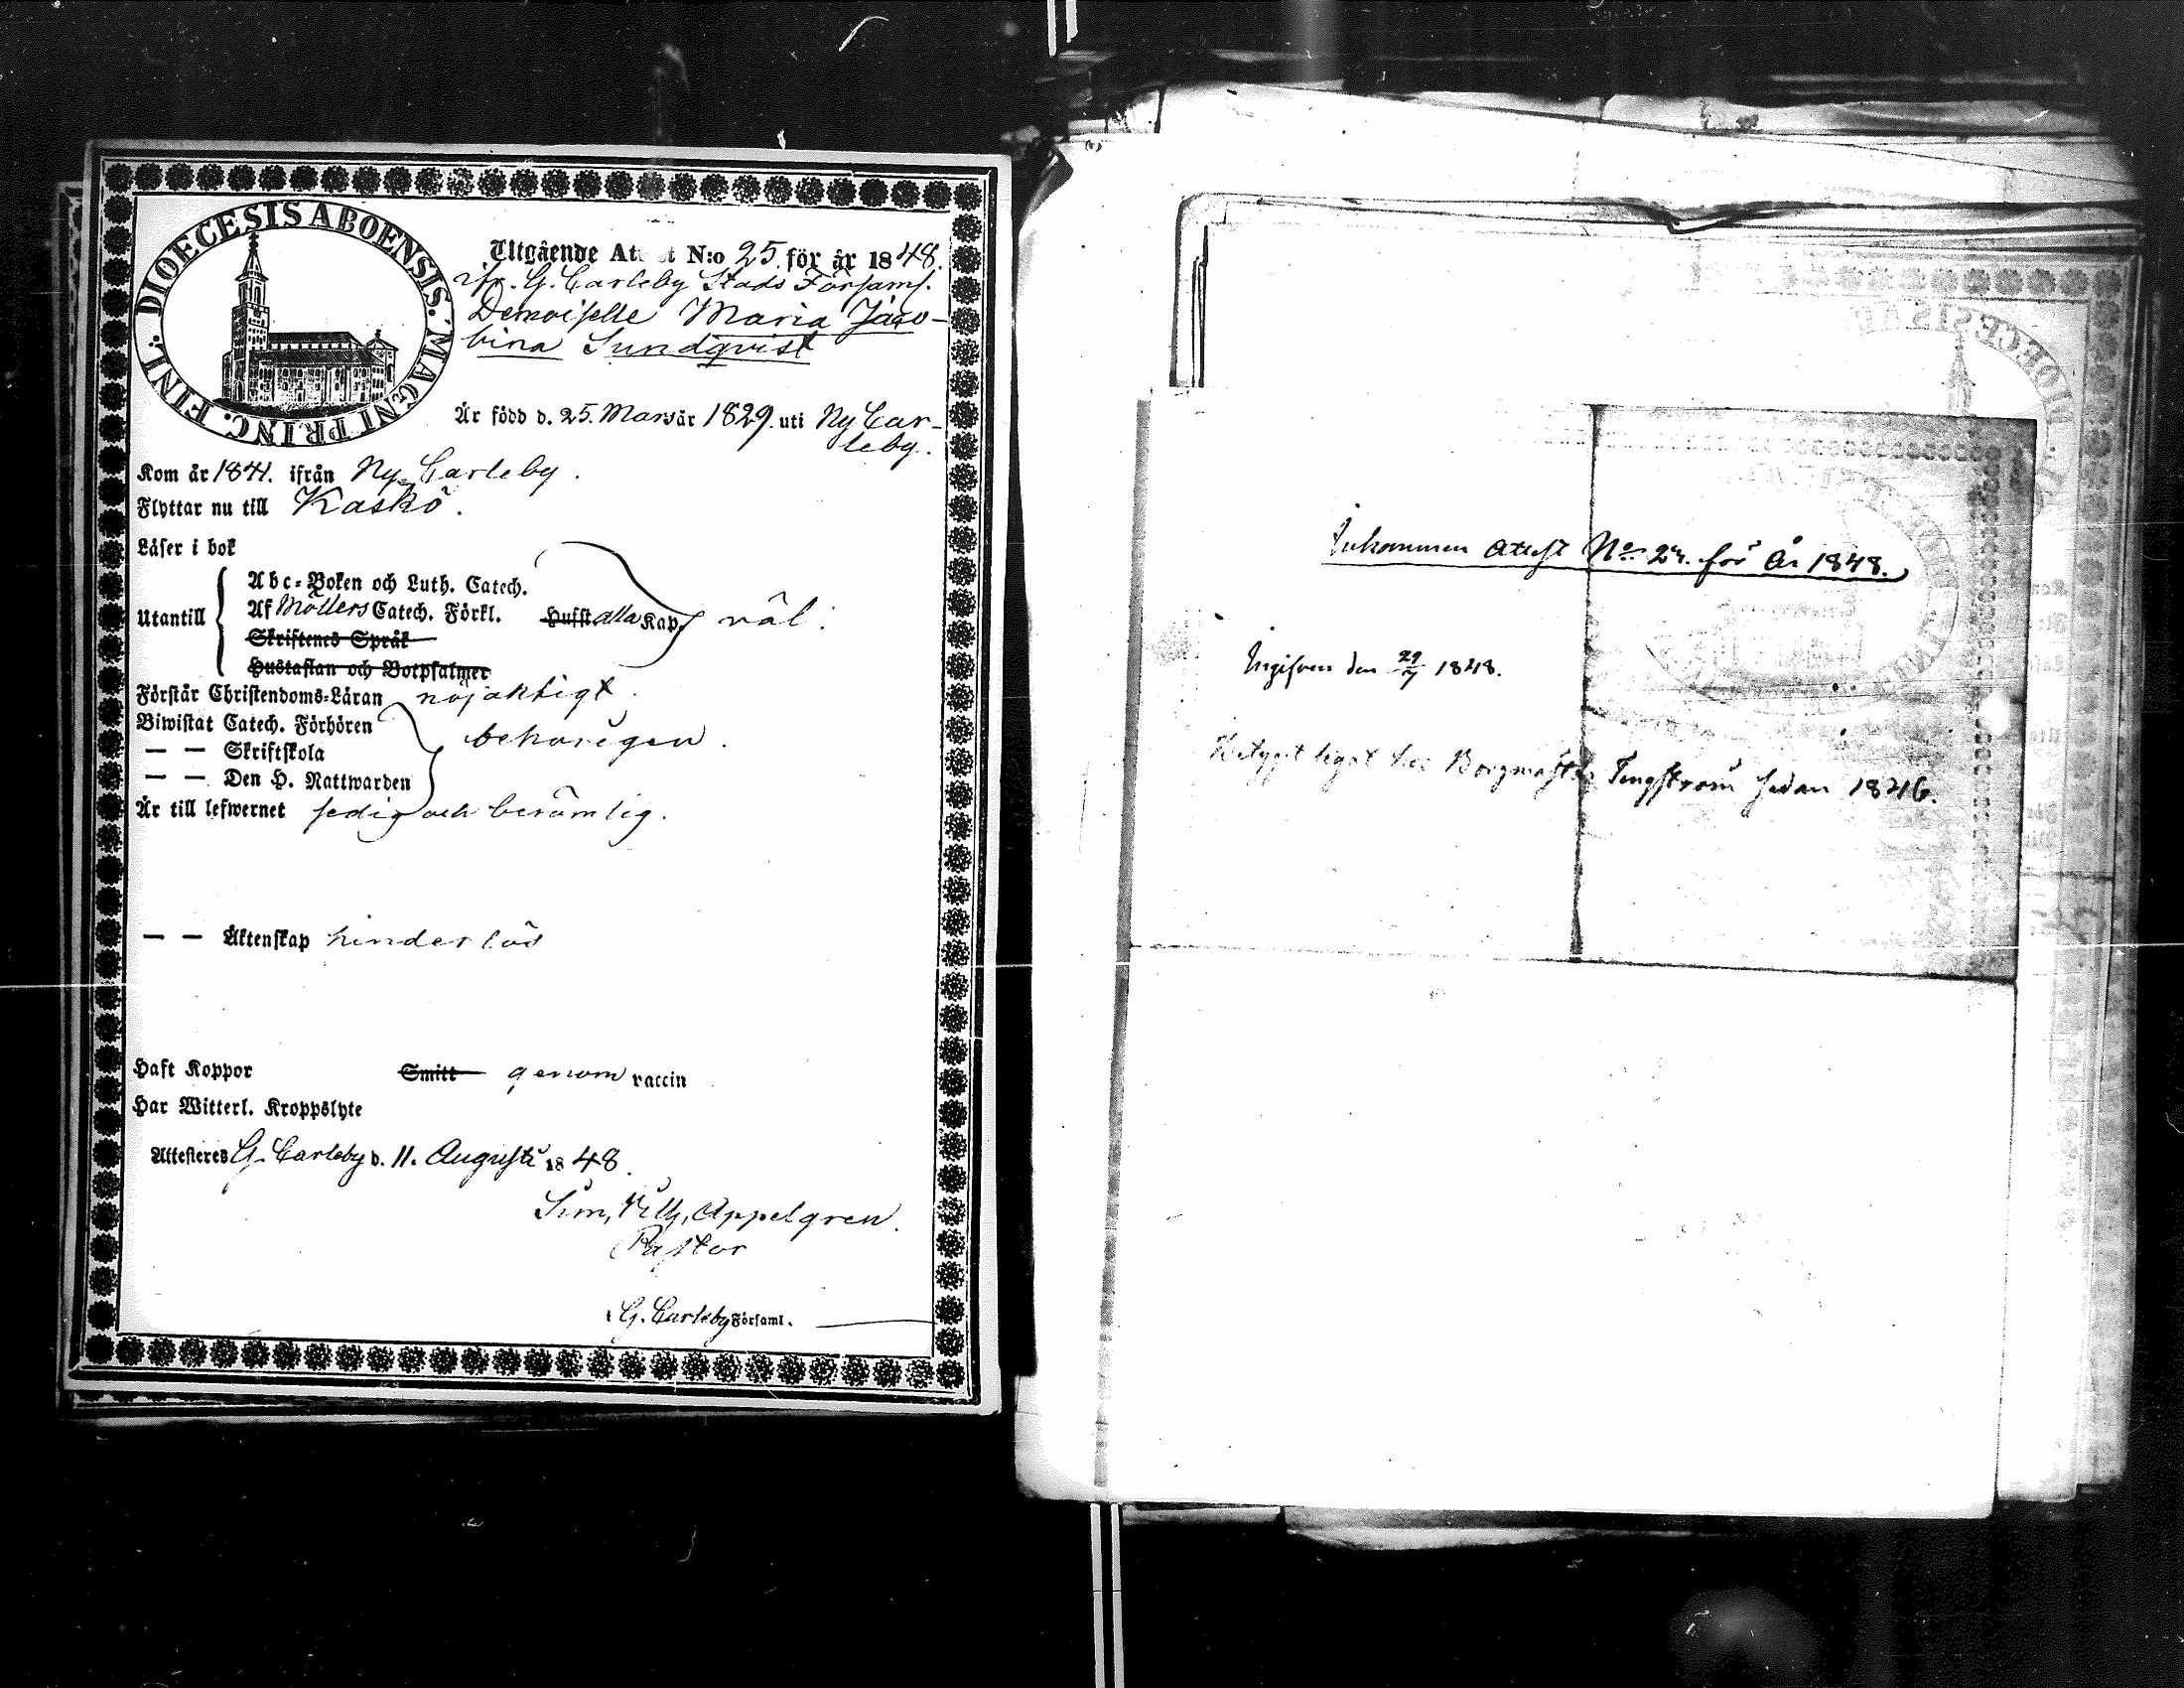 DIOECESIS ABOENSIS. MAGNI PRINC. FINL.
Utgående Attest N:o 25 för år 1848.
ifr. G. Carleby Stads Församl.
Demoiselle Maria Jaco-
bina Sundqvist
Är född d. 25. Mars år 1829. uti Ny Car-
leby.
Kom år 1841. ifrån Ny Carleby.
Flyttar nu till Kaskö.
Läser i bok
Abc-Boken och Luth. Catech.
Utantill Af Möllers Catech. Förkl. Husst alla Kap. väl.
Skriftenes Språk
Hustaflan och Botpsalmer
Förstår Christendoms-Läran nöjaktigt.
Biwistat Catech. Förhören
— — Skriftskola behörigen.
— — Den H. Nattwarden
Är till lefwernet sedig och berömlig.
— — Äktenskap hinderlös
Haft Koppor Smitt genom vaccin
Har Witterl. Kroppslyte
Attesteres G. Carleby d. 11. Augusti 1848.
Sim, Vilh, Appelgren.
Pastor
G. Carleby Församl.
Inkommen attest No 24. för År 1848.
Ingifven den 29/7 1848.
Betyget legat hos Borgmäst Tengström sedan 1846.